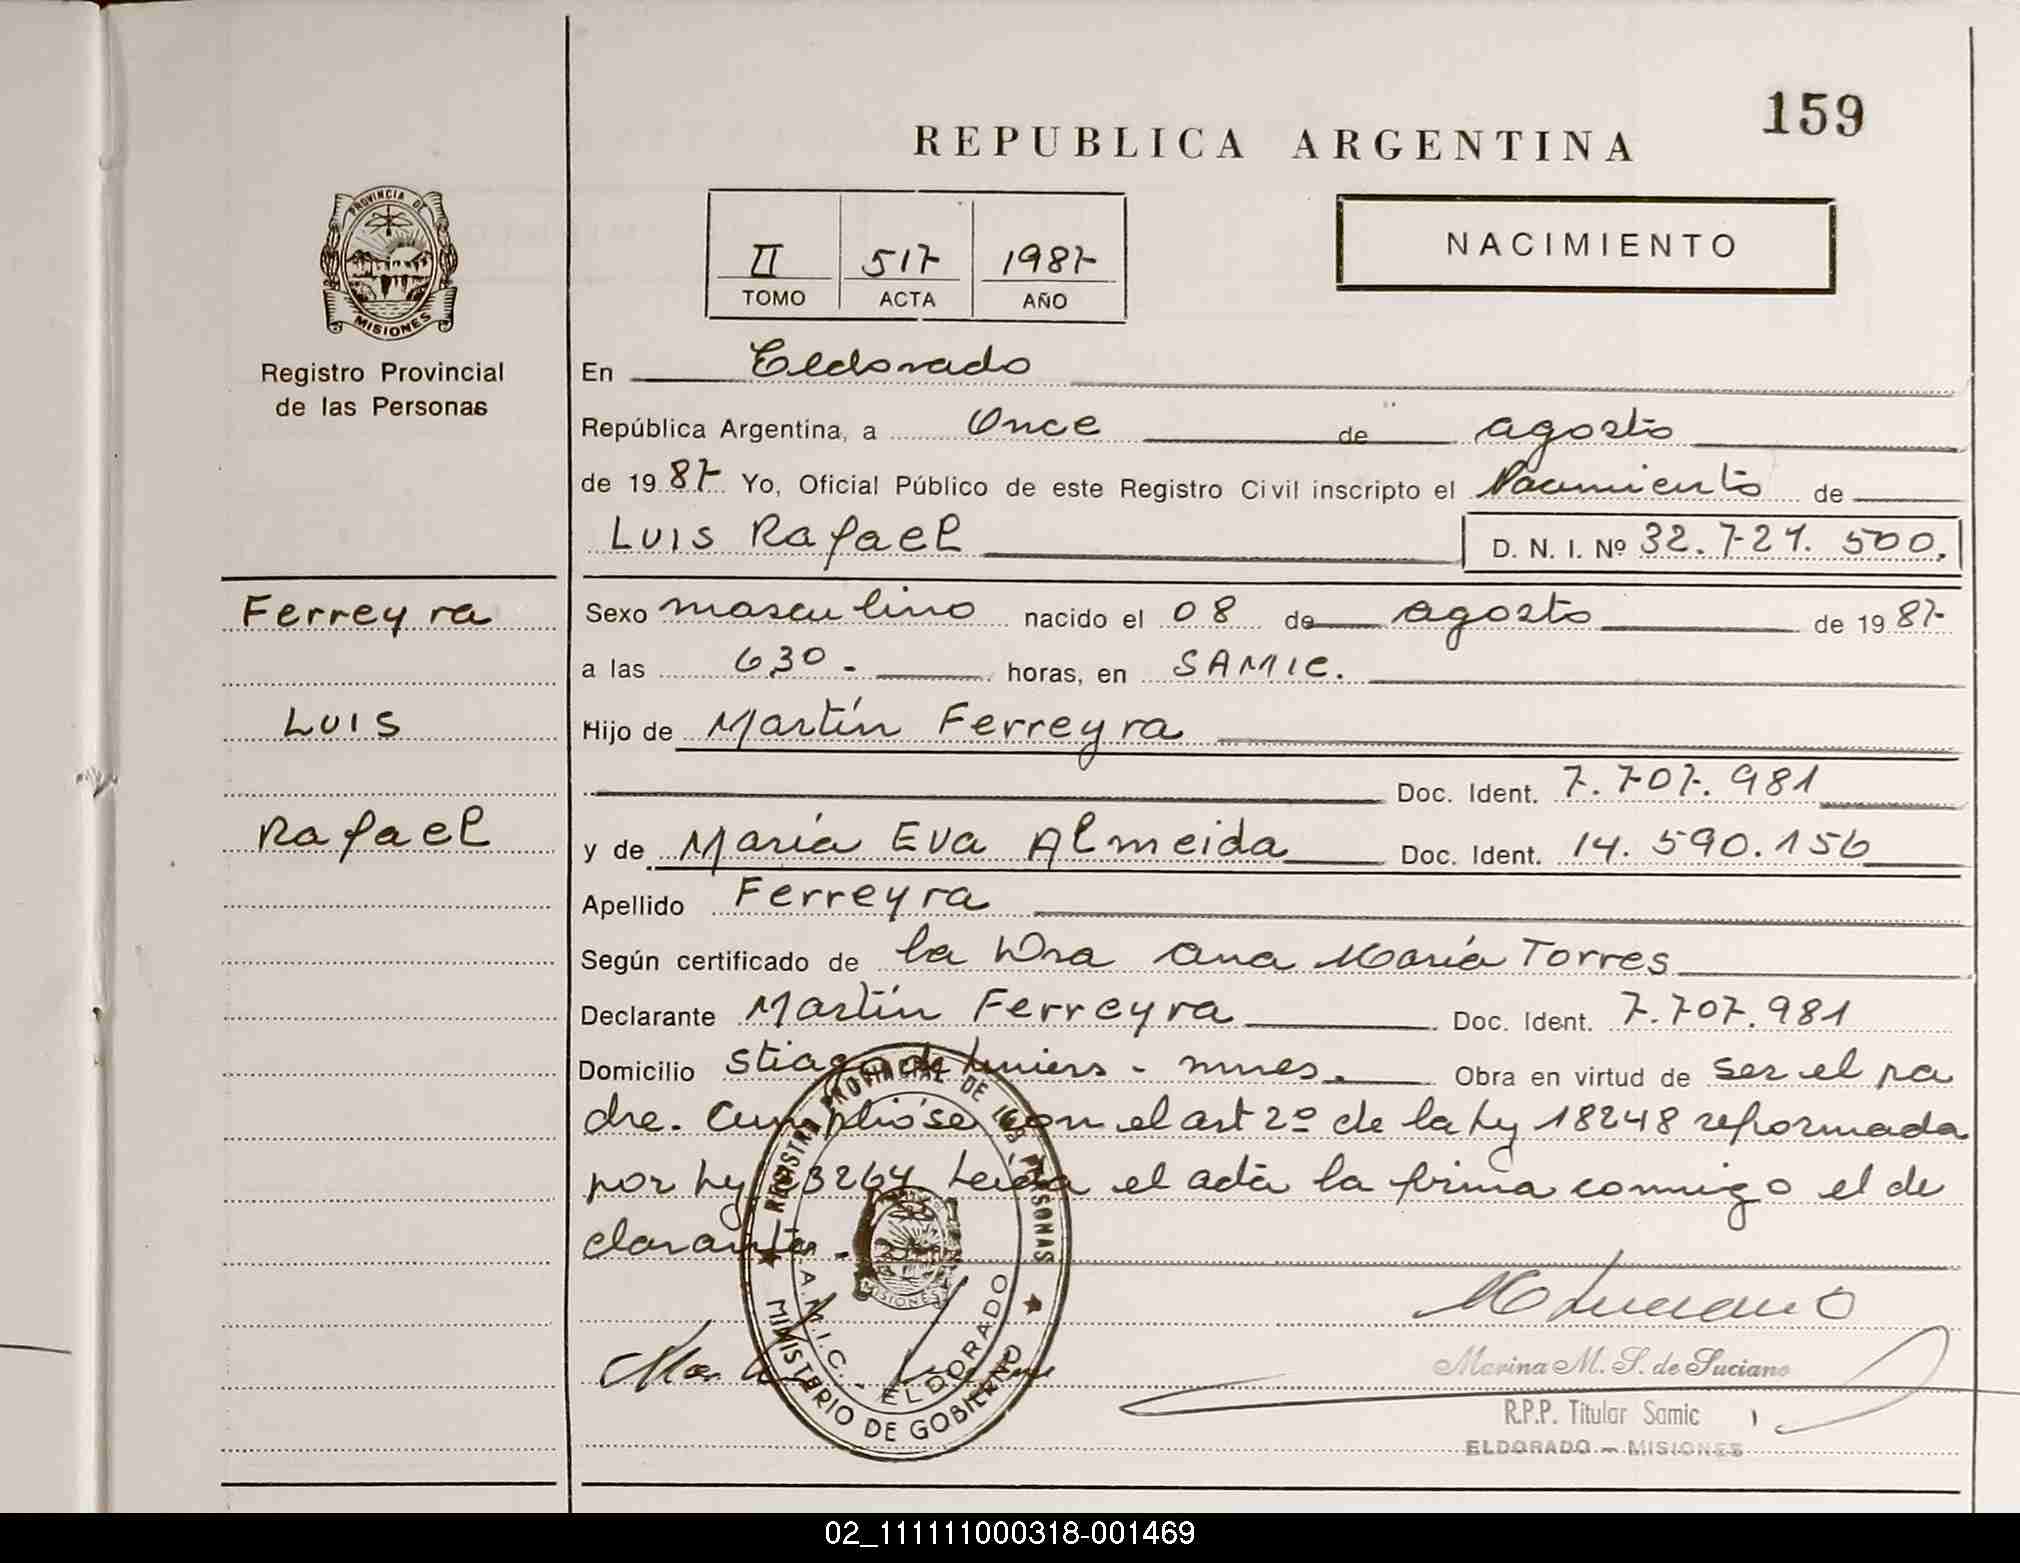 159
REPUBLICA ARGENTINA
PROVINCIA DE
MISIONES
Registro Provincial
de las Personas
II 517 1987
TOMO ACTA AÑO
NACIMIENTO
En Eldorado
República Argentina, a Once de agosto
de 1987 Yo, Oficial Público de este Registro Civil inscripto el Nacimiento de
Luis Rafael D. N. I. Nº 32.727.500.
Ferreyra
Luis
Rafael
Sexo masculino nacido el 08 de agosto de 1987
a las 6,30 - horas, en SAMIC.
Hijo de Martín Ferreyra
Doc. Ident. 7.707.981
y de María Eva Almeida Doc. Ident. 14.590.156
Apellido Ferreyra
Según certificado de la Dra Ana María Torres
Declarante Martín Ferreyra Doc. Ident. 7.707.981
Domicilio Stiago de Liniers - mnes. Obra en virtud de ser el pa
dre. Cumplióse con el art 2º de la Ley 18248 reformada
por Ley 3264 Leída el acta la firma conmigo el de
clarante.
REGISTRO PROVINCIAL DE LAS PERSONAS
MINISTERIO DE GOBIERNO
S.A.M.I.C. - ELDORADO
MISIONES
Marina M. S. de Luciano
R.P.P. Titular Samic
ELDORADO - MISIONES
02_111111000318-001469